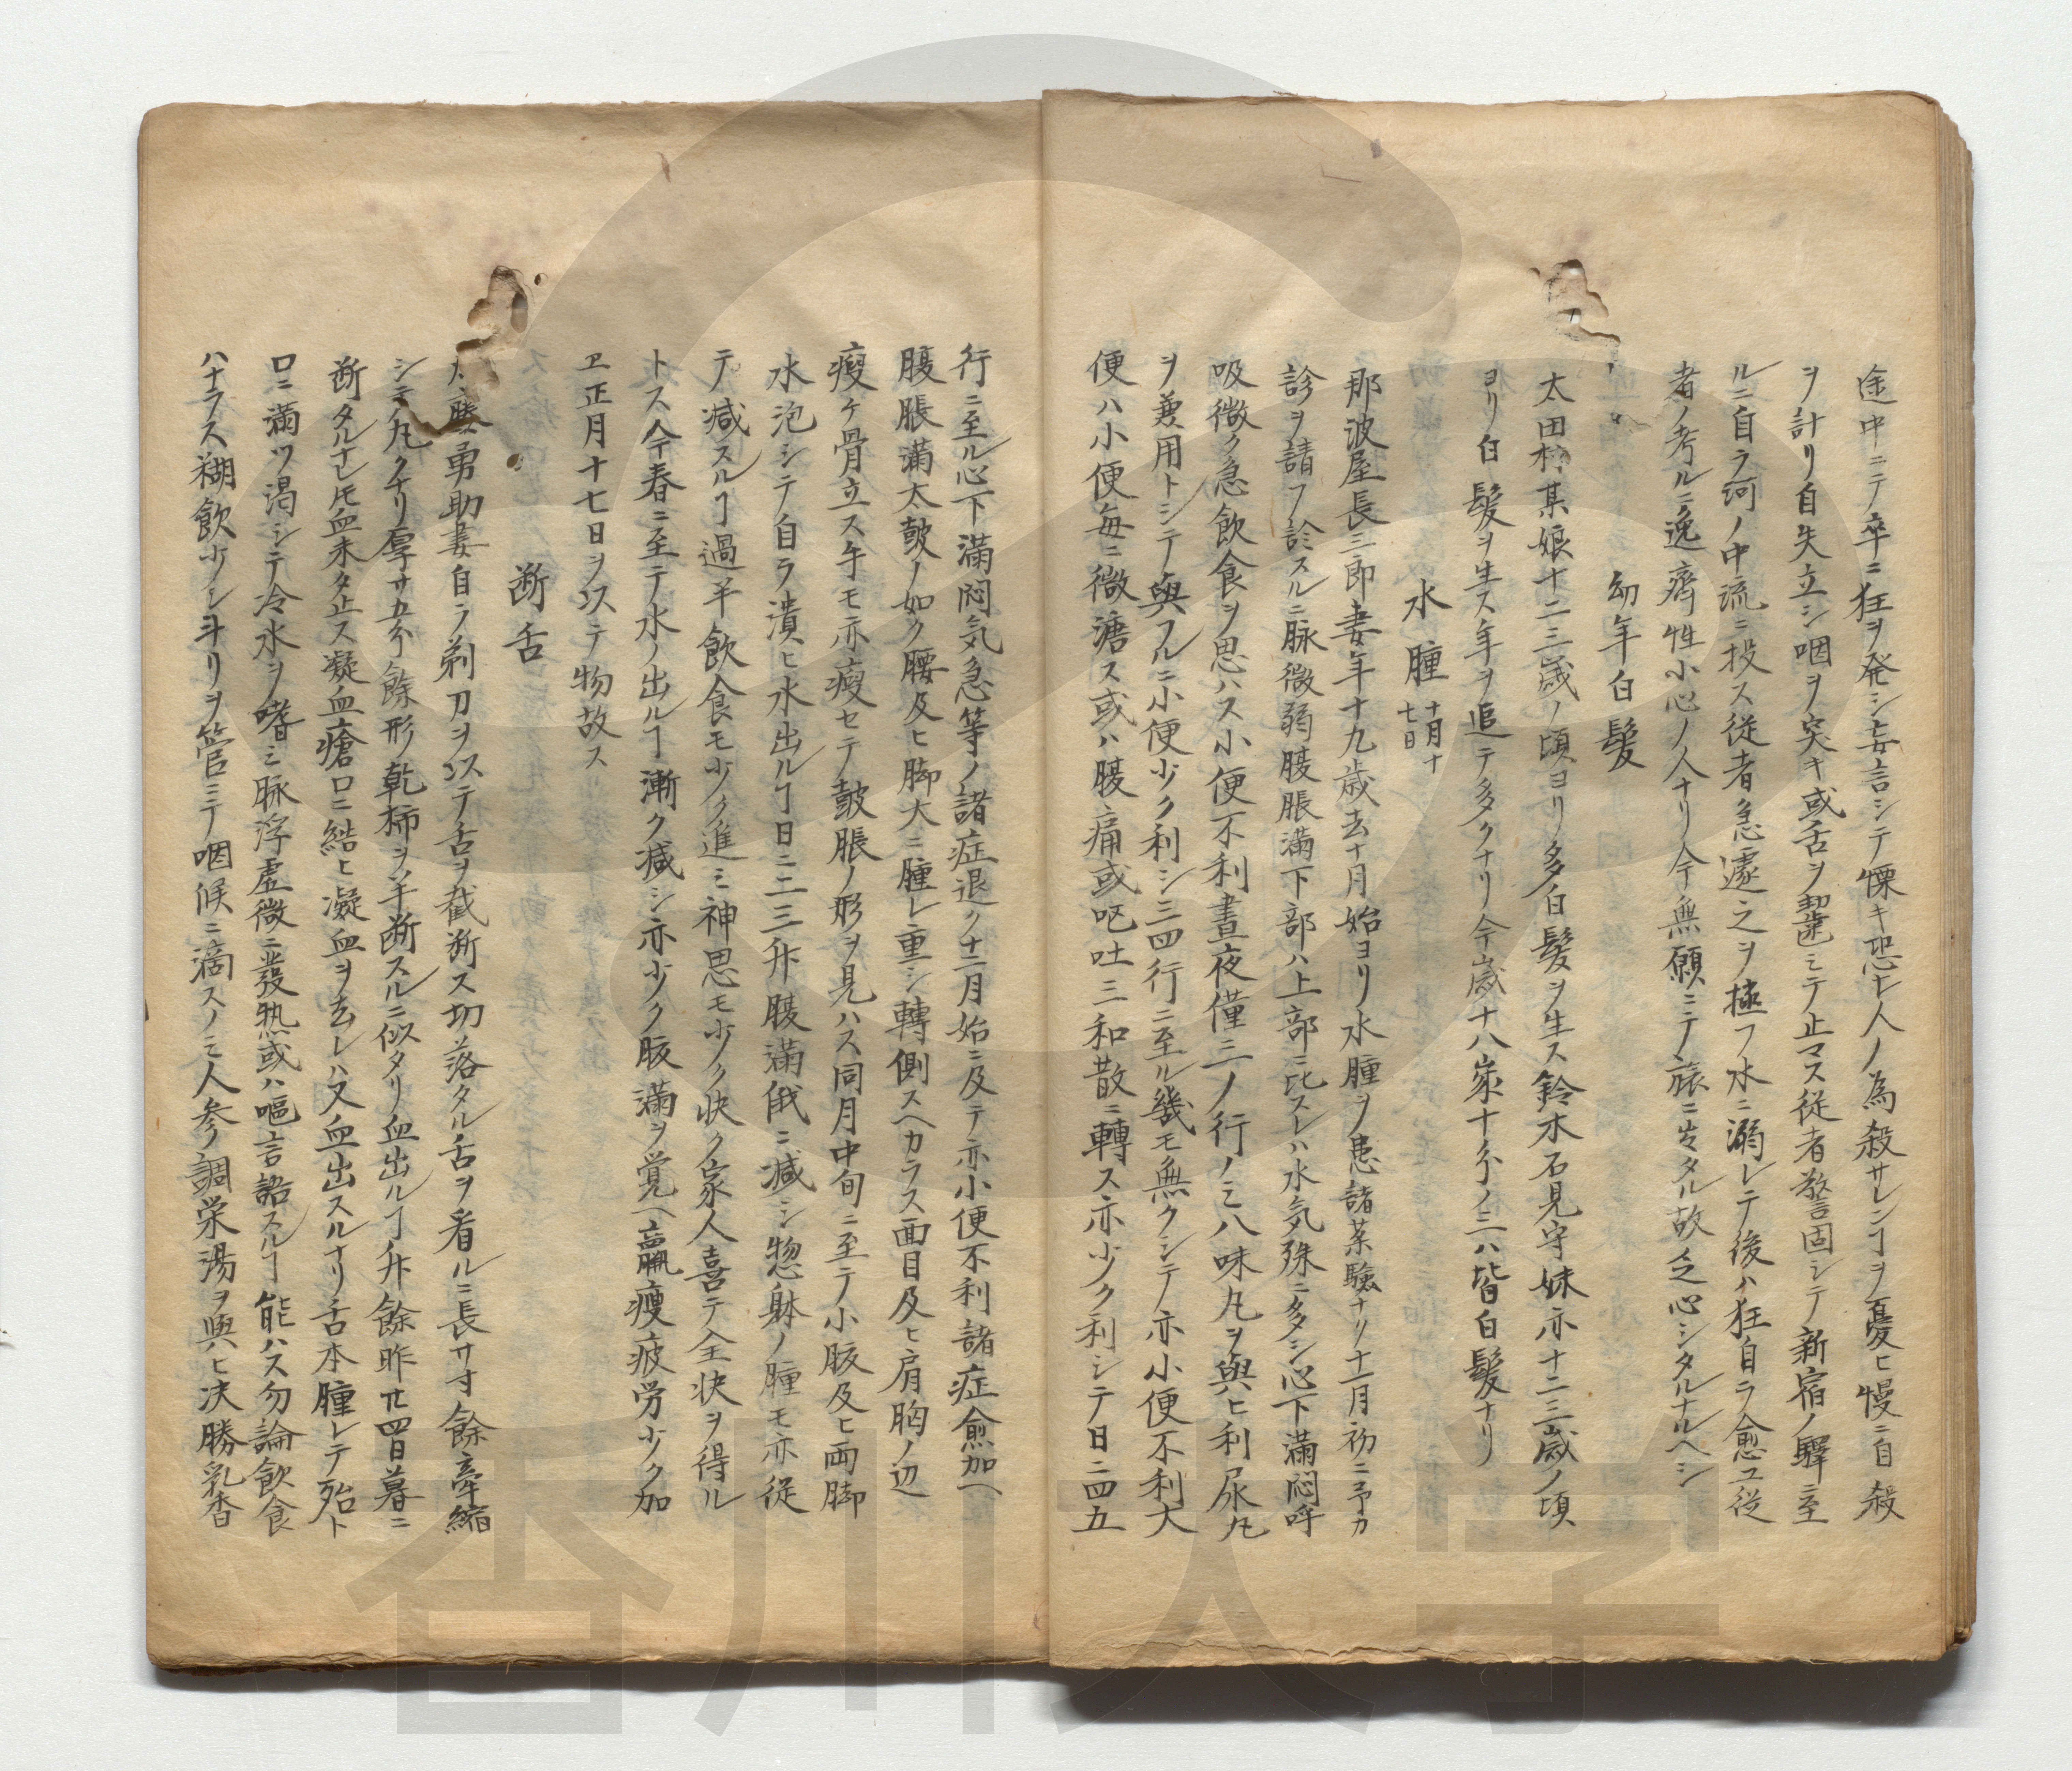 途中ニテ卒ニ狂ヲ発シ妄言シテ慄キ恐レ人ノ為殺サレンヿヲ憂ヒ慢ニ自殺
ヲ計リ自失立シ咽ヲ突キ或舌ヲ齧ミテ止マス従者警固シテ新宿ノ驛ニ至
ルニ自ラ河ノ中流ニ投ス従者急遽之ヲ極フ水ニ溺レテ後ハ狂自ラ愈ユ従
者ノ考ルニ逸齊性小心ノ人ナリ今無願ニテ旅ニ出タル故乏心シタルナルヘシ
幼年白髪
太田村某娘十二三歳ノ頃ヨリ多白髪ヲ生ス鈴木石見守妹亦十二三歳ノ頃
ヨリ白髪ヲ生ス年ヲ追テ多クナリ今歳十八家十分ノ三ハ皆白髪ナリ
水腫 十月十七日
那波屋長三郎妻年十九歳去十月始ヨリ水腫ヲ患諸薬驗ナリ十一月初ニ予カ
診ヲ請フ診スルニ脉微弱腹脹満下部ハ上部ニ比スレハ水気殊ニ多シ心下滿悶呼
吸微ク急飲食ヲ思ハス小便不利晝夜僅ニ一ノ行ノミ八味丸ヲ與ヒ利尿丸
ヲ兼用トシテ與フルニ小便少ク利シ三四行ニ至ル幾モ無クシテ亦小便不利大
便ハ小便毎ニ微溏ス或ハ腹痛或呕吐三和散ニ轉ス亦少ク利シテ日ニ四五
行ニ至ル心下滿悶気急等ノ諸症退ク十二月始ニ及テ亦小便不利諸症愈加ヘ
腹脹滿太皷ノ如ク腰及ヒ脚大ニ腫レ重シ轉側スヘカラス面目及ヒ肩胸ノ辺
瘦ケ骨立ス手モ亦瘦セテ皷脹ノ形ヲ見ハス同月中旬ニ至テ小腹及ヒ両脚
水泡シテ自ラ潰ヒ水出ルヿ日ニ二三升腹滿俄ニ减シ惣躰ノ腫モ亦従
テ减スルヿ過半飲食モ少ク進ミ神思モ少ク快ク家人喜テ全状ヲ得ル
トス今春ニ至テ水ノ出ルヿ漸ク减シ亦少ク腹滿ヲ覚ヘ羸瘦疲労少ク加
ヱ正月十七日ヲ以テ物故ス
断舌
藤勇助妻自ラ剃刀ヲ以テ舌ヲ截断ス切落タル舌ヲ看ルニ長サ寸餘牽縮
シテ丸クナリ厚サ五分餘形乾柿ヲ半断スルニ似タリ血出ルヿ升餘昨廿四日暮ニ
断タルナレ𪜈血未タ止ス凝血瘡口ニ結ヒ凝血ヲ去レハ又血出スルナリ舌本腫レテ殆ト
口ニ滿ツ渇シテ冷水ヲ嗜ミ脉浮虚微ニ發熱或ハ嘔言語スルヿ能ハス勿論飲食
ハナラス糊飲少シ斗リヲ管ニテ咽候ニ滴スノミ人参調栄湯ヲ與ヒ决勝乳香
香川大学